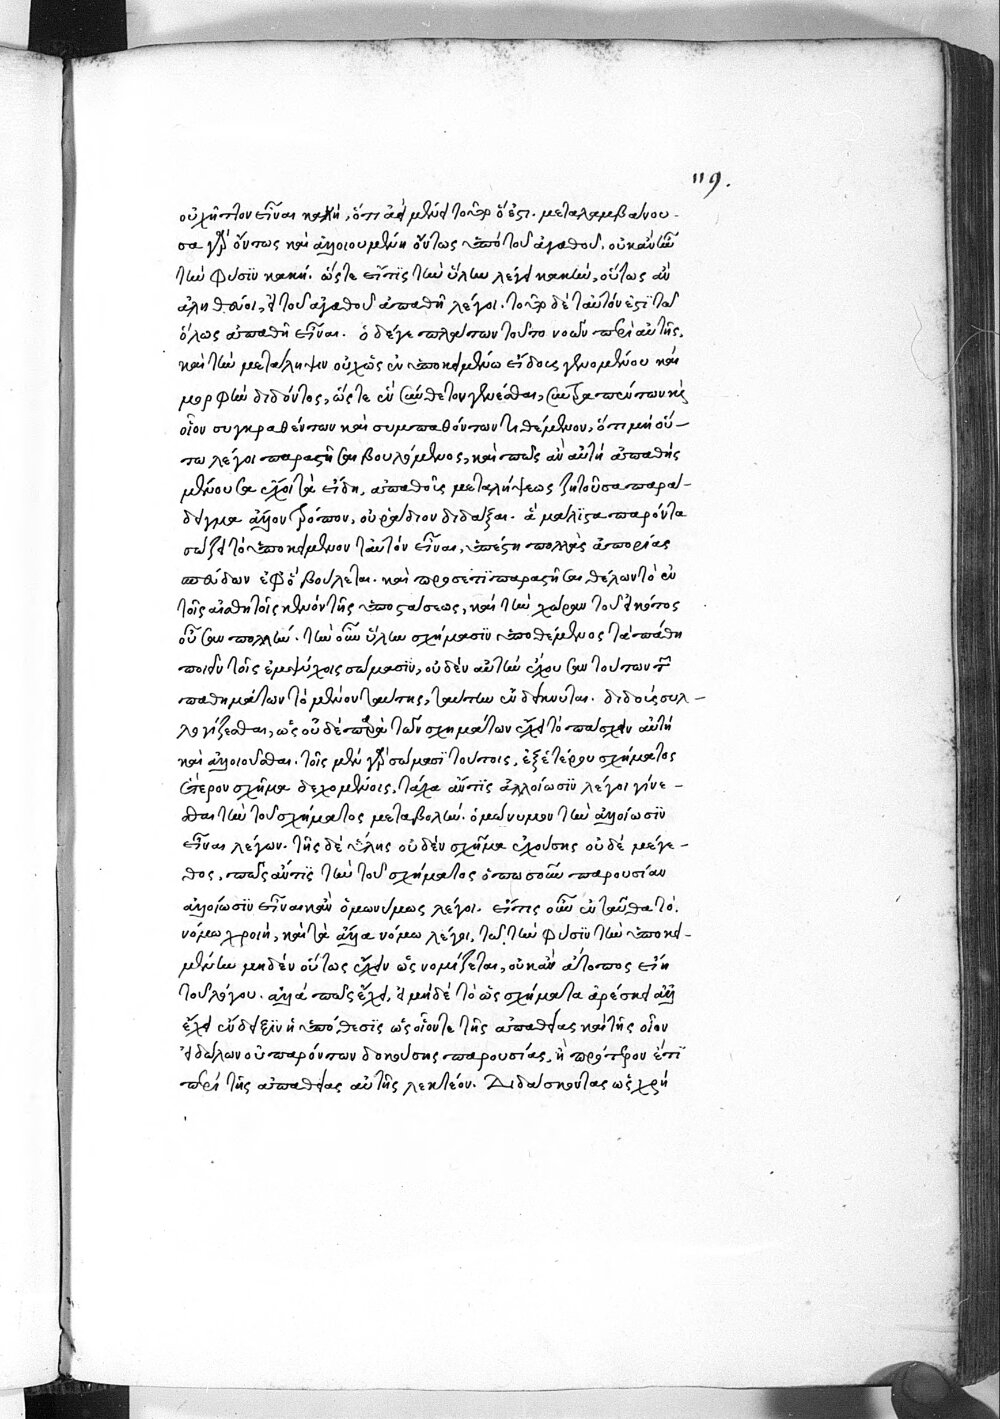 119.
οὐχ ἧττον εἶναι κακή, ὅτι ἀεὶ μένει τοῦθ᾽ ὅ ἐστι. μεταλαμβάνου-
σα γὰρ ὄντως καὶ ἀλλοιουμένη ὄντως ὑπὸ τοῦ ἀγαθοῦ, οὐκ ἂν ἦν
τὴν φύσιν κακή. ὥστε εἴ τις τὴν ὕλην λέγει κακὴν, οὕτως ἂν
ἀληθεύοι, εἰ τοῦ ἀγαθοῦ ἀπαθῆ λέγοι. τοῦτο δὲ ταὐτόν ἐστι τῷ
ὅλως ἀπαθῆ εἶναι. ὁ δέ γε πλάτων τοῦτο νοῶν περὶ αὐτῆς,
καὶ τὴν μετάληψιν οὐχ ὡς ἐν ὑποκειμένω εἴδους γενομένου καὶ
μορφὴν διδόντος, ὥστε ἓν σύνθετον γενέσθαι, συντραπέντων καὶ
οἷον συγκραθέντων καὶ συμπαθόντων τιθέμενον, ὅτι μὴ οὕ-
τω λέγοι παραστῆσαι βουλόμενος, καὶ πῶς ἂν αὐτὴ ἀπαθὴς
μένουσα ἔχοι τὰ εἴδη, ἀπαθοῦς μεταλήψεως ζητοῦσα παρά-
δειγμα ἄλλον τρόπον, οὐ ῥάδιον διδάξαι. ἃ μάλιστα παρόντα
σώζει τὸ ὑποκείμενον ταὐτὸν εἶναι, ὑπέστη πολλὰς ἀπορίας
σπεύδων ἐφ᾽ ὃ βούλεται. καὶ προσέτι παραστῆσαι θέλων τὸ ἐν
τοῖς αἰσθητοῖς κενὸν τῆς ὑποστάσεως, καὶ τὴν χώραν τοῦ εἰκότος
οὖσαν πολλήν. τὴν οὖν ὕλην σχήμασιν ὑποθέμενος τὰ πάθη
ποιεῖν τοῖς ἐμψύχοις σώμασιν, οὐδὲν αὐτὴν ἔχουσαν τούτων τῶν
παθημάτων τὸ μένον ταύτης, ταύτην ἐνδείκνυται. διδοὺς συλ-
λογίζεσθαι, ὡς οὐδὲ παρὰ τῶν σχημάτων ἔχει τὸ πάσχειν αὐτὴ
καὶ ἀλλοιοῦσθαι. τοῖς μὲν γὰρ σώμασι τούτοις, ἐξ ἑτέρου σχήματος
ἕτερον σχῆμα δεχομένοις, τάχα ἄν τις ἀλλοίωσιν λέγοι γίνε-
σθαι τὴν τοῦ σχήματος μεταβολήν. ὁμώνυμον τὴν ἀλλοίωσιν
εἶναι λέγων. τῆς δὲ ὕλης οὐδὲν σχῆμα ἐχούσης οὐδὲ μέγε-
θος, πῶς ἄν τις τὴν τοῦ σχήματος ὁπωσοῦν παρουσίαν
ἀλλοίωσιν εἶναι κἂν ὁμωνύμως λέγοι. εἴ τις οὖν ἐνταῦθα τὸ.
νόμω χροιή, καὶ τὰ ἄλλα νόμω λέγοι, τῷ τὴν φύσιν τὴν ὑποκει-
μένην μηδὲν οὕτως ἔχειν ὡς νομίζεται, οὐκ ἂν ἄτοπος εἴη
τοῦ λόγου. ἀλλὰ πῶς ἔχει, εἰ μηδὲ τὸ ὡς σχήματα ἀρέσκει ἀλλ᾽
ἔχει ἔνδειξιν ἡ ὑπόθεσις ὡς οἷόν τε τῆς ἀπαθείας καὶ τῆς οἷον
εἰδώλων οὐ παρόντων δοκούσης παρουσίας, ἢ πρότερον ἔτι
περὶ τῆς ἀπαθείας αὐτῆς λεκτέον. Διδάσκοντας ὡς χρὴ